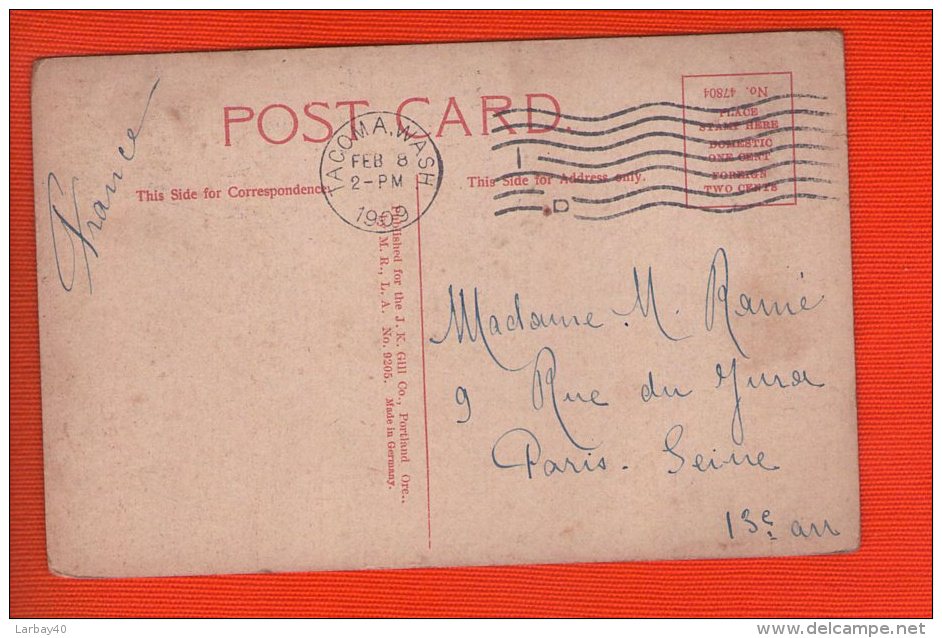 France
POST CARD.
TACOMA, WASH
FEB 8
2-PM
1909
1
D
No. 47804
PLACE
STAMP HERE
DOMESTIC
ONE CENT
FOREIGN
TWO CENTS
This Side for Correspondence.
This Side for Address only.
Published for the J. K. Gill Co., Portland Ore.,
M. R., L. A. No. 9205. Made in Germany.
Madame M. Ramé
9 Rue du Jura
Paris. Seine
13e arr
Larbay40
www.delcampe.net